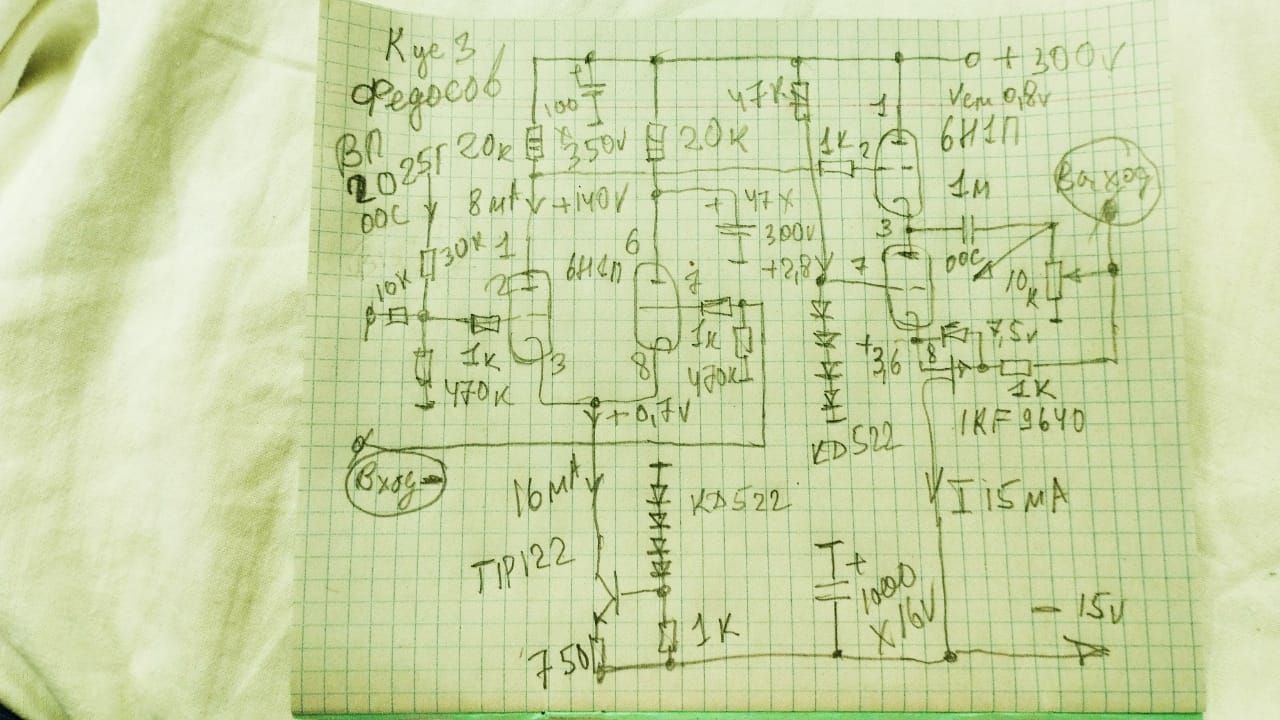 Кус 3
Федосов
ВП
2025Г
ООС
100
х
350v
20к
20к
47к
+300v
Vсм 0,8v
6Н1П
1
1к
2
1м
Выход
8мА
+140v
47х
300v
30к
1
6Н1П
6
+2,8
3
ООС
7
10к
10к
2
1к
3
8
1к
470к
470к
+3,6
8
7,5v
1к
IRF9640
+0,7v
Вход
KD522
16мА
KD522
I 15мА
TIP122
+
1000
х 16v
750
1к
- 15v